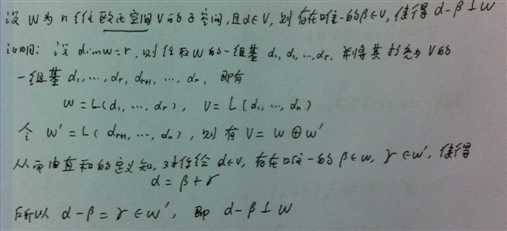 设 W 为 n 维欧氏空间 V 的子空间,且 α∈V, 则存在唯一的 β∈V, 使得 α-β⊥W
证明: 设 dimW=r, 则任取 W 的一组基 α₁, α₂, …, αr, 并将其扩充为 V 的
一组基 α₁, …, αr, αr+1, …, αn, 即有
W=L(α₁, …, αr), V=L(α₁, …, αn)
令 W'=L(αr+1, …, αn), 则有 V=W⊕W'
从而由直和的定义知, 对任给 α∈V, 存在唯一的 β∈W, γ∈W', 使得
α=β+γ
所以 α-β=γ∈W', 即 α-β⊥W